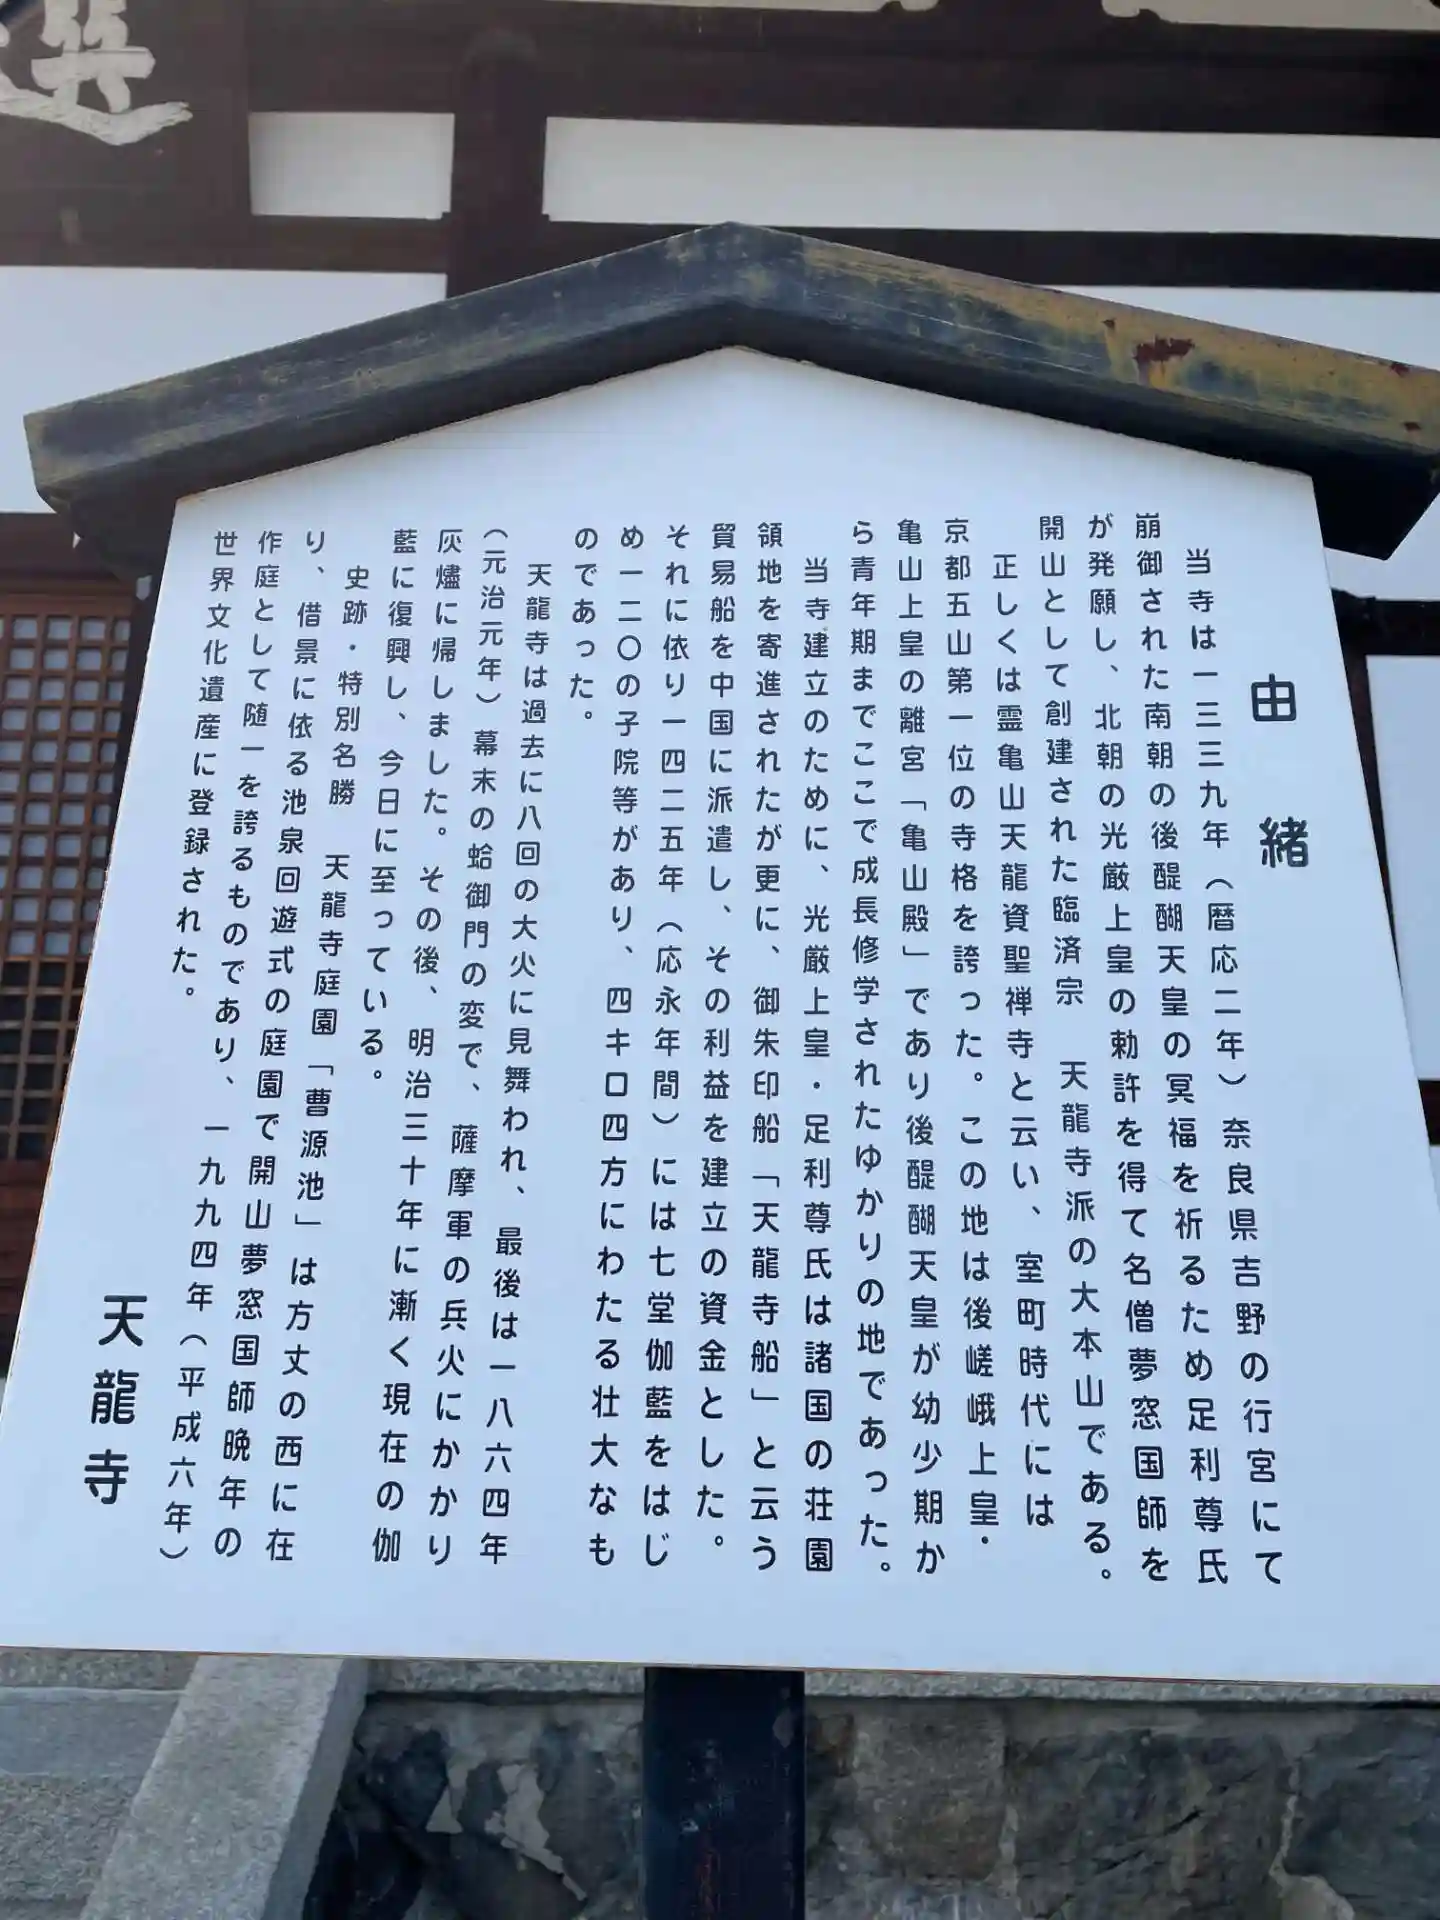 選
由緒
当寺は一三三九年（暦応二年）奈良県吉野の行宮にて
崩御された南朝の後醍醐天皇の冥福を祈るため足利尊氏
が発願し、北朝の光厳上皇の勅許を得て名僧夢窓国師を
開山として創建された臨済宗　天龍寺派の大本山である。
正しくは霊亀山天龍資聖禅寺と云い、室町時代には
京都五山第一位の寺格を誇った。この地は後嵯峨上皇・
亀山上皇の離宮「亀山殿」であり後醍醐天皇が幼少期か
ら青年期までここで成長修学されたゆかりの地であった。
当寺建立のために、光厳上皇・足利尊氏は諸国の荘園
領地を寄進されたが更に、御朱印船「天龍寺船」と云う
貿易船を中国に派遣し、その利益を建立の資金とした。
それに依り一四二五年（応永年間）には七堂伽藍をはじ
め一二〇の子院等があり、四キロ四方にわたる壮大なも
のであった。
天龍寺は過去に八回の大火に見舞われ、最後は一八六四年
（元治元年）幕末の蛤御門の変で、薩摩軍の兵火にかかり
灰燼に帰しました。その後、明治三十年に漸く現在の伽
藍に復興し、今日に至っている。
史跡・特別名勝　天龍寺庭園「曹源池」は方丈の西に在
り、借景に依る池泉回遊式の庭園で開山夢窓国師晩年の
作庭として随一を誇るものであり、一九九四年（平成六年）
世界文化遺産に登録された。
天龍寺